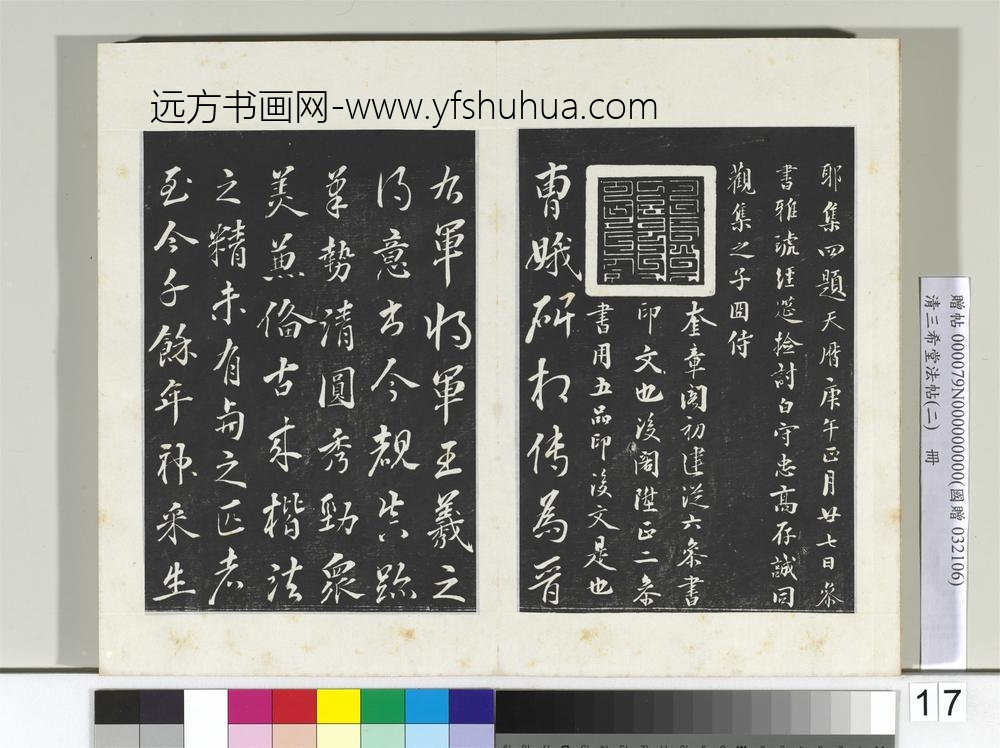 远方书画网-www.yfshuhua.com
耶集四題天曆庚午正月廿七日參
書雅琥經筵檢討白守忠高存誠同
觀集之子囙侍
奎章閣初建從六參書
印文也後閣陞正二參
書用五品印後文是也
曹娥碑相传為晉
右軍將軍王羲之
得意書今覩真跡
筆勢清圓秀勁衆
美兼備古來楷法
之精未有與之匹者
至今千餘年神采生
贈帖 000079N000000000(國贈 032106)
清三希堂法帖(二) 冊
17